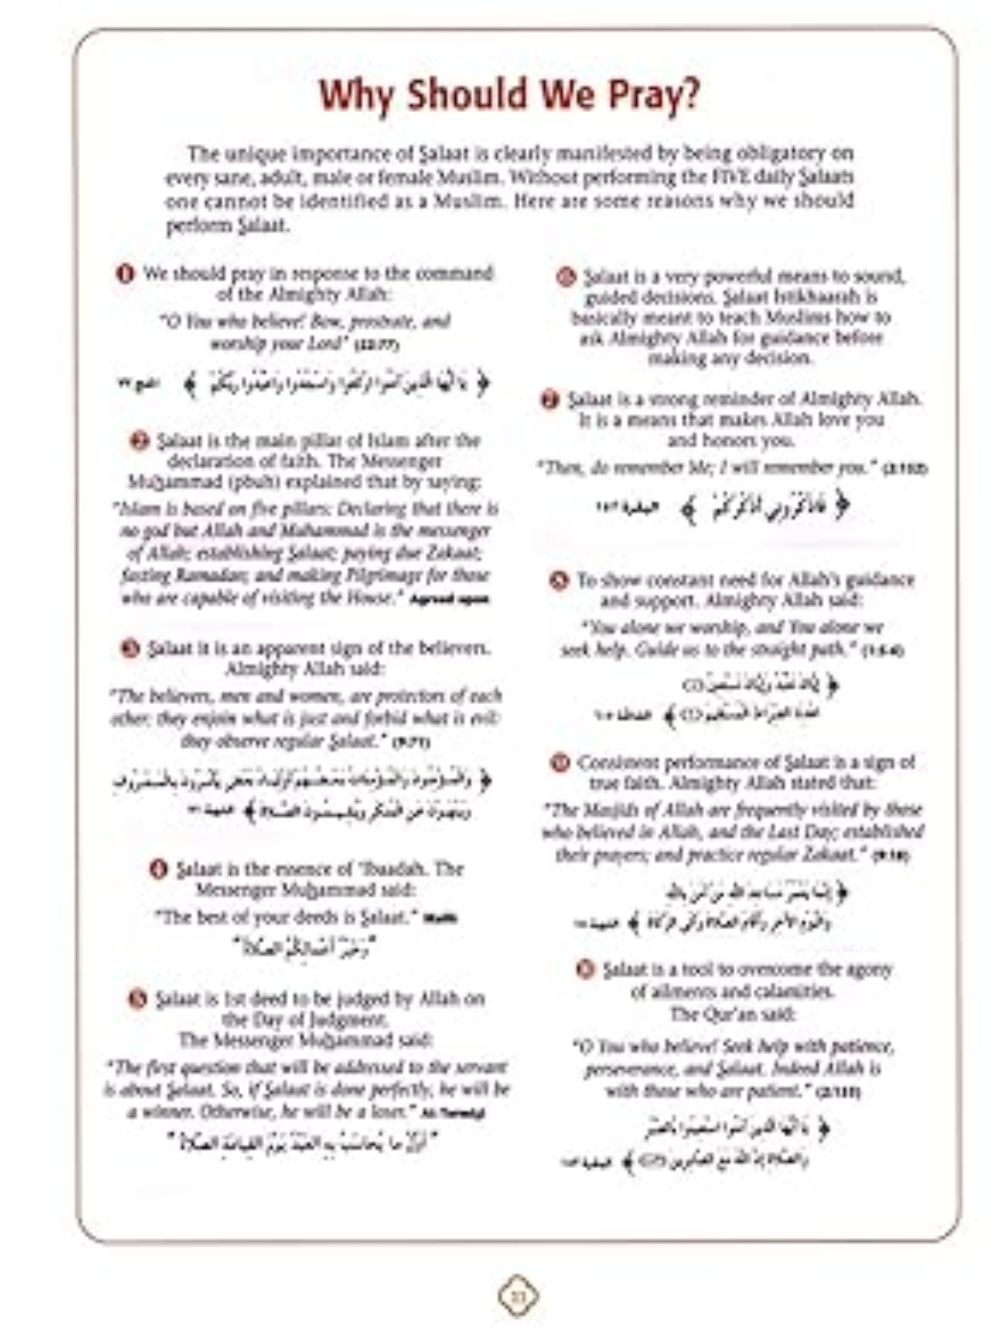 Why Should We Pray?
The unique importance of Ṣalaat is clearly manifested by being obligatory on
every sane, adult, male or female Muslim. Without performing the FIVE daily Ṣalaats
one cannot be identified as a Muslim. Here are some reasons why we should
perform Ṣalaat.
1 We should pray in response to the command
of the Almighty Allah:
"O You who believe! Bow, prostrate, and
worship your Lord" (22:77)
﴿ يَا أَيُّهَا الَّذِينَ آمَنُوا ارْكَعُوا وَاسْجُدُوا وَاعْبُدُوا رَبَّكُمْ ﴾ الحج ٧٧
2 Ṣalaat is the main pillar of Islam after the
declaration of faith. The Messenger
Muḥammad (pbuh) explained that by saying:
"Islam is based on five pillars: Declaring that there is
no god but Allah and Muhammad is the messenger
of Allah; establishing Ṣalaat; paying due Zakaat;
fasting Ramadan; and making Pilgrimage for those
who are capable of visiting the House." Agreed upon
3 Ṣalaat it is an apparent sign of the believers.
Almighty Allah said:
"The believers, men and women, are protectors of each
other: they enjoin what is just and forbid what is evil:
they observe regular Ṣalaat." (9:71)
﴿ وَالْمُؤْمِنُونَ وَالْمُؤْمِنَاتُ بَعْضُهُمْ أَوْلِيَاءُ بَعْضٍ يَأْمُرُونَ بِالْمَعْرُوفِ
وَيَنْهَوْنَ عَنِ الْمُنْكَرِ وَيُقِيمُونَ الصَّلَاةَ ﴾ التوبة ٧١
4 Ṣalaat is the essence of 'Ibaadah. The
Messenger Muḥammad said:
"The best of your deeds is Ṣalaat." Malik
"وَخَيْرُ أَعْمَالِكُمُ الصَّلَاةُ"
5 Ṣalaat is 1st deed to be judged by Allah on
the Day of Judgment.
The Messenger Muḥammad said:
"The first question that will be addressed to the servant
is about Ṣalaat. So, if Ṣalaat is done perfectly, he will be
a winner. Otherwise, he will be a loser."
"أَوَّلُ مَا يُحَاسَبُ بِهِ العَبْدُ يَوْمَ القِيَامَةِ الصَّلَاةُ"
Ṣalaat is a very powerful means to sound,
guided decisions. Ṣalaat Istikhaarah is
basically meant to teach Muslims how to
ask Almighty Allah for guidance before
making any decision.
7 Ṣalaat is a strong reminder of Almighty Allah.
It is a means that makes Allah love you
and honors you.
"Then, do remember Me; I will remember you." (2:152)
﴿ فَاذْكُرُونِي أَذْكُرْكُمْ ﴾ البقرة ١٥٢
To show constant need for Allah's guidance
and support. Almighty Allah said:
"You alone we worship, and You alone we
seek help. Guide us to the straight path." (1:5-6)
﴿ إِيَّاكَ نَعْبُدُ وَإِيَّاكَ نَسْتَعِينُ
اهْدِنَا الصِّرَاطَ الْمُسْتَقِيمَ ﴾ الفاتحة
Consistent performance of Ṣalaat is a sign of
true faith. Almighty Allah stated that:
"The Masjids of Allah are frequently visited by those
who believed in Allah, and the Last Day; established
their prayers; and practice regular Zakaat." (9:18)
﴿ إِنَّمَا يَعْمُرُ مَسَاجِدَ اللَّهِ مَنْ آمَنَ بِاللَّهِ
وَالْيَوْمِ الْآخِرِ وَأَقَامَ الصَّلَاةَ وَآتَى الزَّكَاةَ ﴾ التوبة
Ṣalaat is a tool to overcome the agony
of ailments and calamities.
The Qur'an said:
"O You who believe! Seek help with patience,
perseverance, and Ṣalaat. Indeed Allah is
with those who are patient."
﴿ يَا أَيُّهَا الَّذِينَ آمَنُوا اسْتَعِينُوا بِالصَّبْرِ
وَالصَّلَاةِ إِنَّ اللَّهَ مَعَ الصَّابِرِينَ ﴾ البقرة